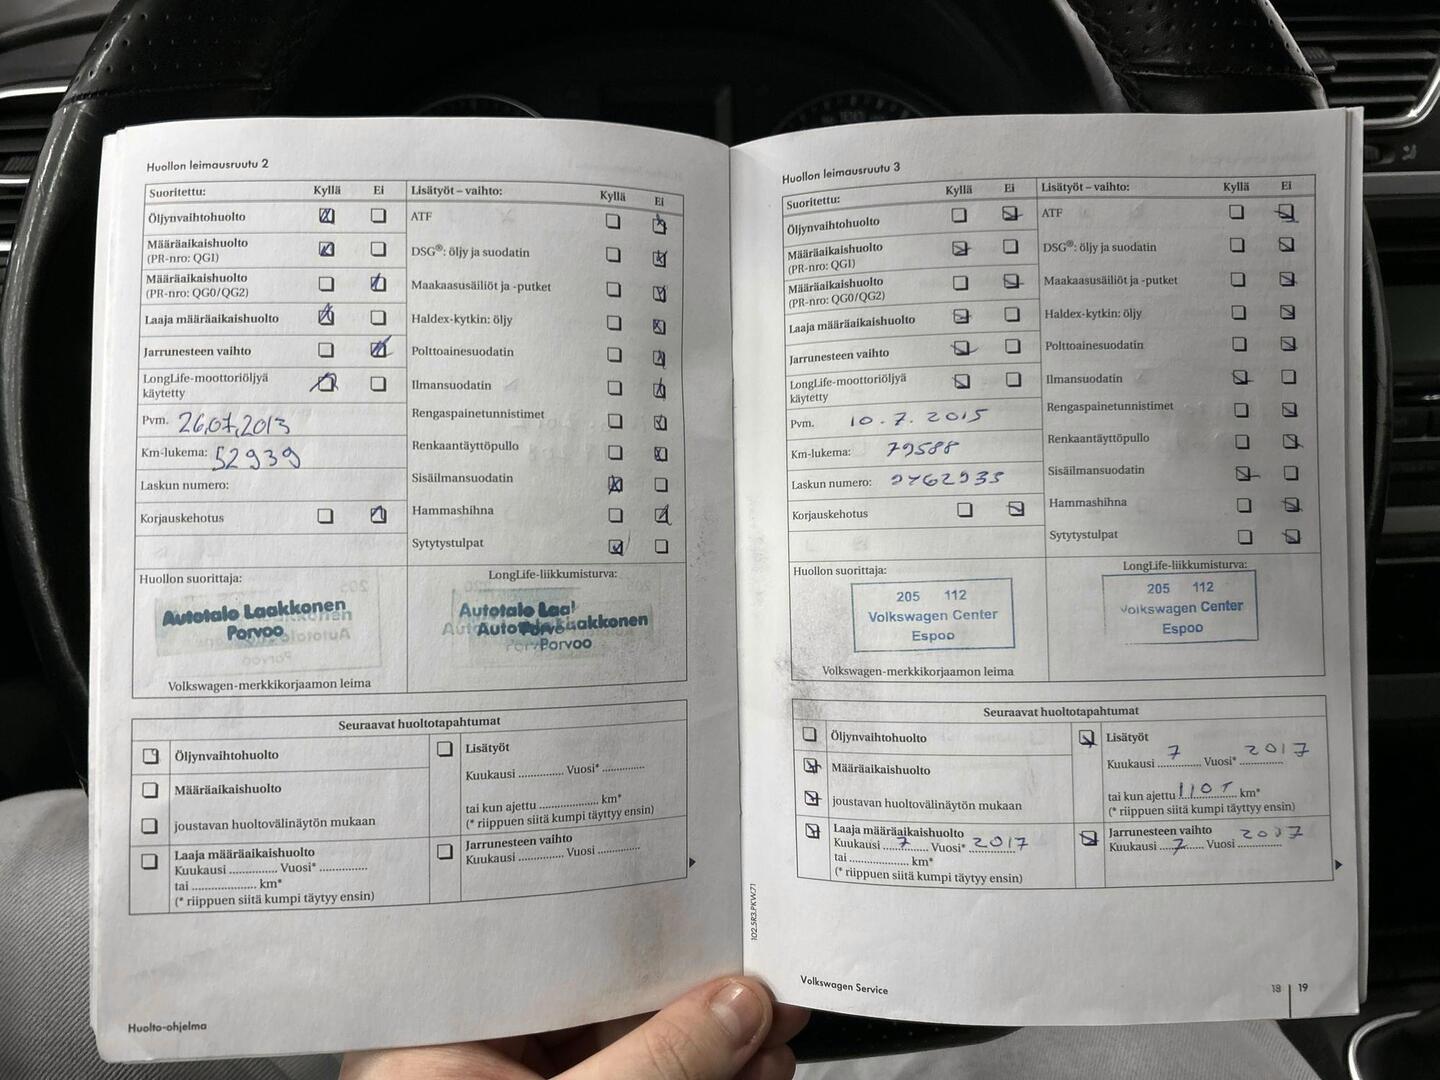 Huollon leimausruutu 2
Suoritettu: Kyllä Ei
Öljynvaihtohuolto
Määräaikaishuolto
(PR-nro: QG1)
Määräaikaishuolto
(PR-nro: QG0/QG2)
Laaja määräaikaishuolto
Jarrunesteen vaihto
LongLife-moottoriöljyä
käytetty
Pvm. 26,07,2013
Km-lukema: 52939
Laskun numero:
Korjauskehotus
Lisätyöt – vaihto: Kyllä Ei
ATF
DSG®: öljy ja suodatin
Maakaasusäiliöt ja -putket
Haldex-kytkin: öljy
Polttoainesuodatin
Ilmansuodatin
Rengaspainetunnistimet
Renkaantäyttöpullo
Sisäilmansuodatin
Hammashihna
Sytytystulpat
Huollon suorittaja:
Autotalo Laakkonen
Porvoo
Volkswagen-merkkikorjaamon leima
LongLife-liikkumisturva:
Autotalo Laakkonen
Porvoo
Seuraavat huoltotapahtumat
Öljynvaihtohuolto
Määräaikaishuolto
joustavan huoltovälinäytön mukaan
Laaja määräaikaishuolto
Kuukausi .............. Vuosi* ..............
tai .................... km*
(* riippuen siitä kumpi täytyy ensin)
Lisätyöt
Kuukausi .............. Vuosi* .............
tai kun ajettu .................. km*
(* riippuen siitä kumpi täyttyy ensin)
Jarrunesteen vaihto
Kuukausi .............. Vuosi .............
Huolto-ohjelma
Huollon leimausruutu 3
Suoritettu: Kyllä Ei
Öljynvaihtohuolto
Määräaikaishuolto
(PR-nro: QG1)
Määräaikaishuolto
(PR-nro: QG0/QG2)
Laaja määräaikaishuolto
Jarrunesteen vaihto
LongLife-moottoriöljyä
käytetty
Pvm. 10.7.2015
Km-lukema: 79588
Laskun numero:
Korjauskehotus
Lisätyöt – vaihto: Kyllä Ei
ATF
DSG®: öljy ja suodatin
Maakaasusäiliöt ja -putket
Haldex-kytkin: öljy
Polttoainesuodatin
Ilmansuodatin
Rengaspainetunnistimet
Renkaantäyttöpullo
Sisäilmansuodatin
Hammashihna
Sytytystulpat
Huollon suorittaja:
205 112
Volkswagen Center
Espoo
Volkswagen-merkkikorjaamon leima
LongLife-liikkumisturva:
205 112
Volkswagen Center
Espoo
Seuraavat huoltotapahtumat
Öljynvaihtohuolto
Määräaikaishuolto
joustavan huoltovälinäytön mukaan
Laaja määräaikaishuolto
Kuukausi 7 Vuosi* 2017
tai .................... km*
(* riippuen siitä kumpi täytyy ensin)
Lisätyöt
Kuukausi 7 Vuosi* 2017
tai kun ajettu 110T km*
(* riippuen siitä kumpi täyttyy ensin)
Jarrunesteen vaihto
Kuukausi 7 Vuosi 2017
102.5R3.PKW.71
Volkswagen Service
18 | 19